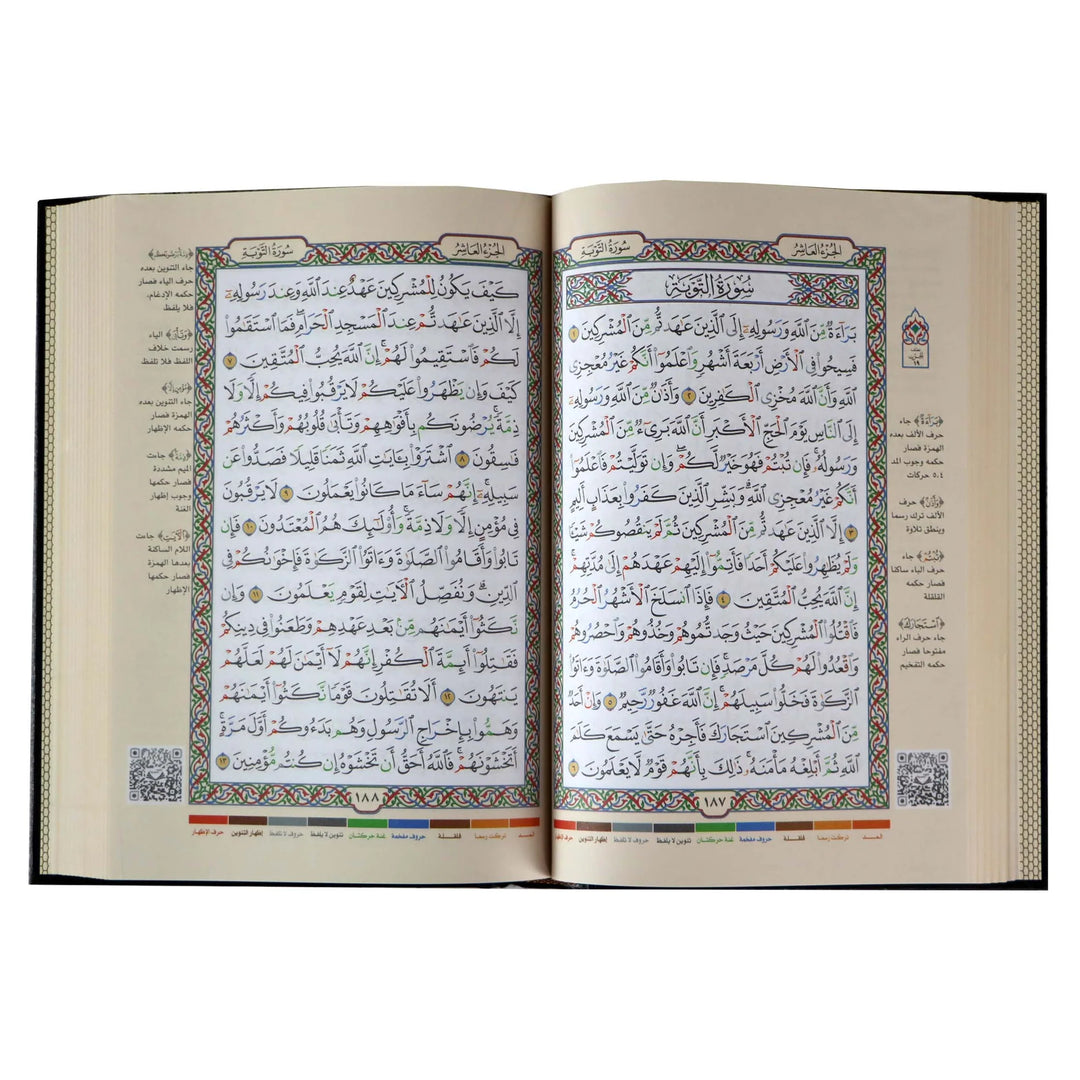 الجزء العاشر
سورة التوبة
سُورَةُ التَّوْبَةِ
بَرَآءَةٌ مِّنَ ٱللَّهِ وَرَسُولِهِۦٓ إِلَى ٱلَّذِينَ عَٰهَدتُّم مِّنَ ٱلْمُشْرِكِينَ ١
فَسِيحُوا۟ فِى ٱلْأَرْضِ أَرْبَعَةَ أَشْهُرٍ وَٱعْلَمُوٓا۟ أَنَّكُمْ غَيْرُ مُعْجِزِى
ٱللَّهِ وَأَنَّ ٱللَّهَ مُخْزِى ٱلْكَٰفِرِينَ ٢ وَأَذَٰنٌ مِّنَ ٱللَّهِ وَرَسُولِهِۦٓ
إِلَى ٱلنَّاسِ يَوْمَ ٱلْحَجِّ ٱلْأَكْبَرِ أَنَّ ٱللَّهَ بَرِىٓءٌ مِّنَ ٱلْمُشْرِكِينَ
وَرَسُولُهُۥ فَإِن تُبْتُمْ فَهُوَ خَيْرٌ لَّكُمْ وَإِن تَوَلَّيْتُمْ فَٱعْلَمُوٓا۟
أَنَّكُمْ غَيْرُ مُعْجِزِى ٱللَّهِ وَبَشِّرِ ٱلَّذِينَ كَفَرُوا۟ بِعَذَابٍ أَلِيمٍ
٣ إِلَّا ٱلَّذِينَ عَٰهَدتُّم مِّنَ ٱلْمُشْرِكِينَ ثُمَّ لَمْ يَنقُصُوكُمْ شَيْـًٔا
وَلَمْ يُظَٰهِرُوا۟ عَلَيْكُمْ أَحَدًا فَأَتِمُّوٓا۟ إِلَيْهِمْ عَهْدَهُمْ إِلَىٰ مُدَّتِهِمْ
إِنَّ ٱللَّهَ يُحِبُّ ٱلْمُتَّقِينَ ٤ فَإِذَا ٱنسَلَخَ ٱلْأَشْهُرُ ٱلْحُرُمُ
فَٱقْتُلُوا۟ ٱلْمُشْرِكِينَ حَيْثُ وَجَدتُّمُوهُمْ وَخُذُوهُمْ وَٱحْصُرُوهُمْ
وَٱقْعُدُوا۟ لَهُمْ كُلَّ مَرْصَدٍ فَإِن تَابُوا۟ وَأَقَامُوا۟ ٱلصَّلَوٰةَ وَءَاتَوُا۟
ٱلزَّكَوٰةَ فَخَلُّوا۟ سَبِيلَهُمْ إِنَّ ٱللَّهَ غَفُورٌ رَّحِيمٌ ٥ وَإِنْ أَحَدٌ
مِّنَ ٱلْمُشْرِكِينَ ٱسْتَجَارَكَ فَأَجِرْهُ حَتَّىٰ يَسْمَعَ كَلَٰمَ
ٱللَّهِ ثُمَّ أَبْلِغْهُ مَأْمَنَهُۥ ذَٰلِكَ بِأَنَّهُمْ قَوْمٌ لَّا يَعْلَمُونَ ٦
١٨٧
١٩
﴿بَرَآءَةٌ﴾ جاء
حرف الألف بعده
الهمزة فصار
حكمه وجوب المد
٥،٤ حركات
﴿وَأَذَٰنٌ﴾ حرف
الألف ترك رسما
وينطق تلاوة
﴿تُبْتُمْ﴾ جاء
حرف الباء ساكنا
فصار حكمه
القلقلة
﴿ٱسْتَجَارَكَ﴾
جاء حرف الراء
مفتوحا فصار
حكمه التفخيم
المـد
تركت رسما
قلقلة
حروف مفخمة
غنة حركتان
تنوين لا يلفظ
حروف لا تلفظ
إظهار التنوين
حرف الإظهار
الجزء العاشر
سورة التوبة
كَيْفَ يَكُونُ لِلْمُشْرِكِينَ عَهْدٌ عِندَ ٱللَّهِ وَعِندَ رَسُولِهِۦٓ
إِلَّا ٱلَّذِينَ عَٰهَدتُّمْ عِندَ ٱلْمَسْجِدِ ٱلْحَرَامِ فَمَا ٱسْتَقَٰمُوا۟
لَكُمْ فَٱسْتَقِيمُوا۟ لَهُمْ إِنَّ ٱللَّهَ يُحِبُّ ٱلْمُتَّقِينَ ٧
كَيْفَ وَإِن يَظْهَرُوا۟ عَلَيْكُمْ لَا يَرْقُبُوا۟ فِيكُمْ إِلًّا وَلَا
ذِمَّةً يُرْضُونَكُم بِأَفْوَٰهِهِمْ وَتَأْبَىٰ قُلُوبُهُمْ وَأَكْثَرُهُمْ
فَٰسِقُونَ ٨ ٱشْتَرَوْا۟ بِـَٔايَٰتِ ٱللَّهِ ثَمَنًا قَلِيلًا فَصَدُّوا۟ عَن
سَبِيلِهِۦٓ إِنَّهُمْ سَآءَ مَا كَانُوا۟ يَعْمَلُونَ ٩ لَا يَرْقُبُونَ
فِى مُؤْمِنٍ إِلًّا وَلَا ذِمَّةً وَأُو۟لَٰٓئِكَ هُمُ ٱلْمُعْتَدُونَ ١٠ فَإِن
تَابُوا۟ وَأَقَامُوا۟ ٱلصَّلَوٰةَ وَءَاتَوُا۟ ٱلزَّكَوٰةَ فَإِخْوَٰنُكُمْ فِى
ٱلدِّينِ وَنُفَصِّلُ ٱلْـَٔايَٰتِ لِقَوْمٍ يَعْلَمُونَ ١١ وَإِن
نَّكَثُوٓا۟ أَيْمَٰنَهُم مِّنۢ بَعْدِ عَهْدِهِمْ وَطَعَنُوا۟ فِى دِينِكُمْ
فَقَٰتِلُوٓا۟ أَئِمَّةَ ٱلْكُفْرِ إِنَّهُمْ لَآ أَيْمَٰنَ لَهُمْ لَعَلَّهُمْ
يَنتَهُونَ ١٢ أَلَا تُقَٰتِلُونَ قَوْمًا نَّكَثُوٓا۟ أَيْمَٰنَهُمْ
وَهَمُّوا۟ بِإِخْرَاجِ ٱلرَّسُولِ وَهُم بَدَءُوكُمْ أَوَّلَ مَرَّةٍ
أَتَخْشَوْنَهُمْ فَٱللَّهُ أَحَقُّ أَن تَخْشَوْهُ إِن كُنتُم مُّؤْمِنِينَ ١٣
١٨٨
جاء التنوين بعده
حرف الياء فصار
حكمه الإدغام،
فلا يلفظ
﴿وَتَأْبَىٰ﴾ الياء
رسمت خلاف
اللفظ فلا تلفظ
﴿مُؤْمِنٍ إِلًّا﴾
جاء التنوين بعده
الهمزة فصار
حكمه الإظهار
﴿ذِمَّةً﴾ جاءت
الميم مشددة
فصار حكمها
وجوب إظهار
الغنة
﴿ٱلْـَٔايَٰتِ﴾ جاءت
اللام الساكنة
بعدها الهمزة
فصار حكمها
الإظهار
المـد
تركت رسما
قلقلة
حروف مفخمة
غنة حركتان
تنوين لا يلفظ
حروف لا تلفظ
إظهار التنوين
حرف الإظهار